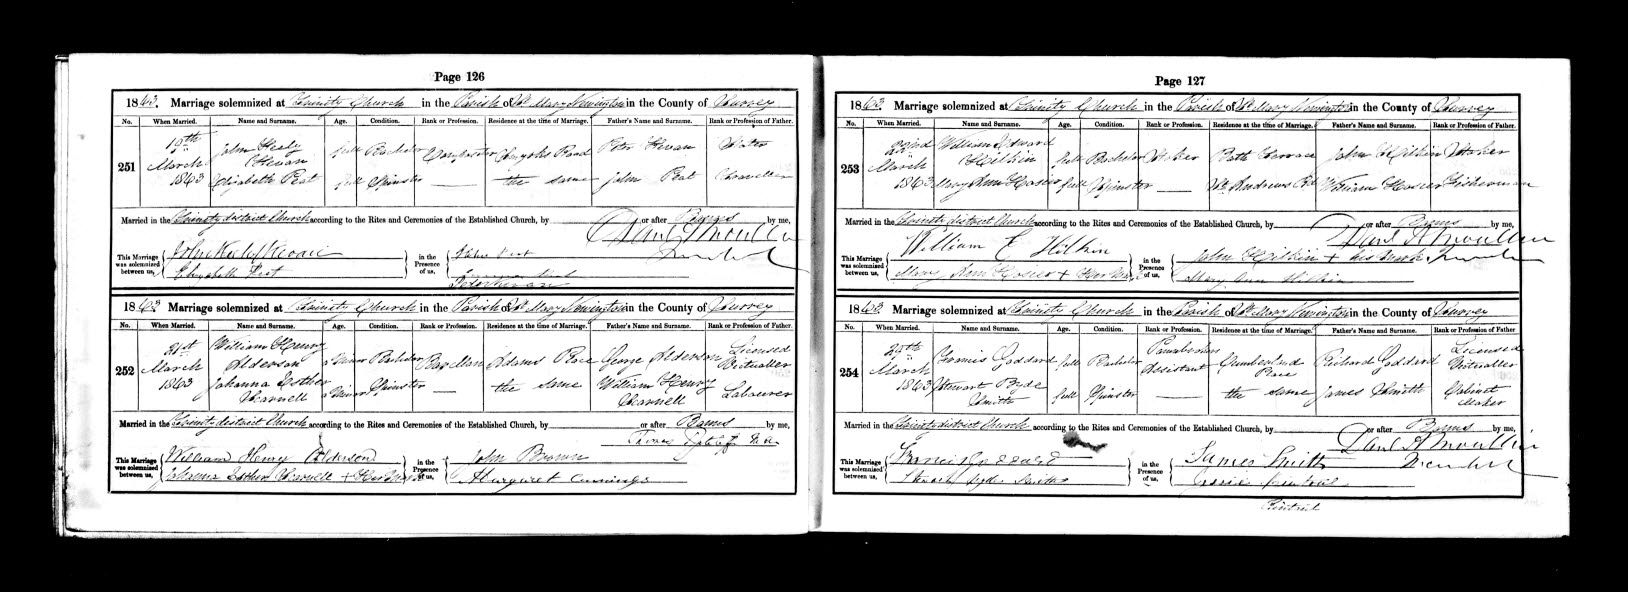 Page 126
1863. Marriage solemnized at Trinity Church in the Parish of St. Mary Newington in the County of Surrey
No. When Married. Name and Surname. Age. Condition. Rank or Profession. Residence at the time of Marriage. Father's Name and Surname. Rank or Profession of Father.
251 19th March 1863 John Healy Kevan full Bachelor Compositor Road Peter Kevan
Elizabeth Peat full Spinster — the same John Peat Traveller
Married in the Trinity district Church according to the Rites and Ceremonies of the Established Church, by or after Banns by me,
This Marriage was solemnized between us, John Healy Kevan
Elizabeth Peat
in the Presence of us, Peat
Peter Kevan
1863 Marriage solemnized at Trinity Church in the Parish of St. Mary Newington in the County of Surrey
No. When Married. Name and Surname. Age. Condition. Rank or Profession. Residence at the time of Marriage. Father's Name and Surname. Rank or Profession of Father.
252 21st March 1863 William Henry Alderson a Minor Bachelor Bar Man Adams Place George Alderson Licensed Victualler
Johanna Esther Scarnell a Minor Spinster — the same William Henry Scarnell Labourer
Married in the Trinity district Church according to the Rites and Ceremonies of the Established Church, by or after Banns by me,
This Marriage was solemnized between us, William Henry Alderson
Johanna Esther Scarnell + Her Mark
in the Presence of us, John Brown
Margaret Cunnings
Page 127
1863. Marriage solemnized at Trinity Church in the Parish of St. Mary Newington in the County of Surrey
No. When Married. Name and Surname. Age. Condition. Rank or Profession. Residence at the time of Marriage. Father's Name and Surname. Rank or Profession of Father.
253 22nd March 1863 William Edward Hilkin full Bachelor Stoker Bath Terrace John Hilkin Stoker
Mary Ann Hosier full Spinster — St. Andrews Rd William Hosier Fisherman
Married in the Trinity district Church according to the Rites and Ceremonies of the Established Church, by or after Banns by me,
This Marriage was solemnized between us, William E Hilkin
Mary Ann Hosier + Her Mark
in the Presence of us, John Hilkin + his mark
Mary Ann Hilkin
1863. Marriage solemnized at Trinity Church in the Parish of St. Mary Newington in the County of Surrey
No. When Married. Name and Surname. Age. Condition. Rank or Profession. Residence at the time of Marriage. Father's Name and Surname. Rank or Profession of Father
254 29th March 1863 Francis Goddard full Bachelor Pawnbrokers Assistant Cumberland Place Richard Goddard Licensed Victualler
Stewart Ryde Smith full Spinster — the same James Smith Cabinet Maker
Married in the Trinity district Church according to the Rites and Ceremonies of the Established Church, by or after Banns by me,
This Marriage was solemnized between us, Francis Goddard
Stewart Ryde Smith
in the Presence of us, James Smith